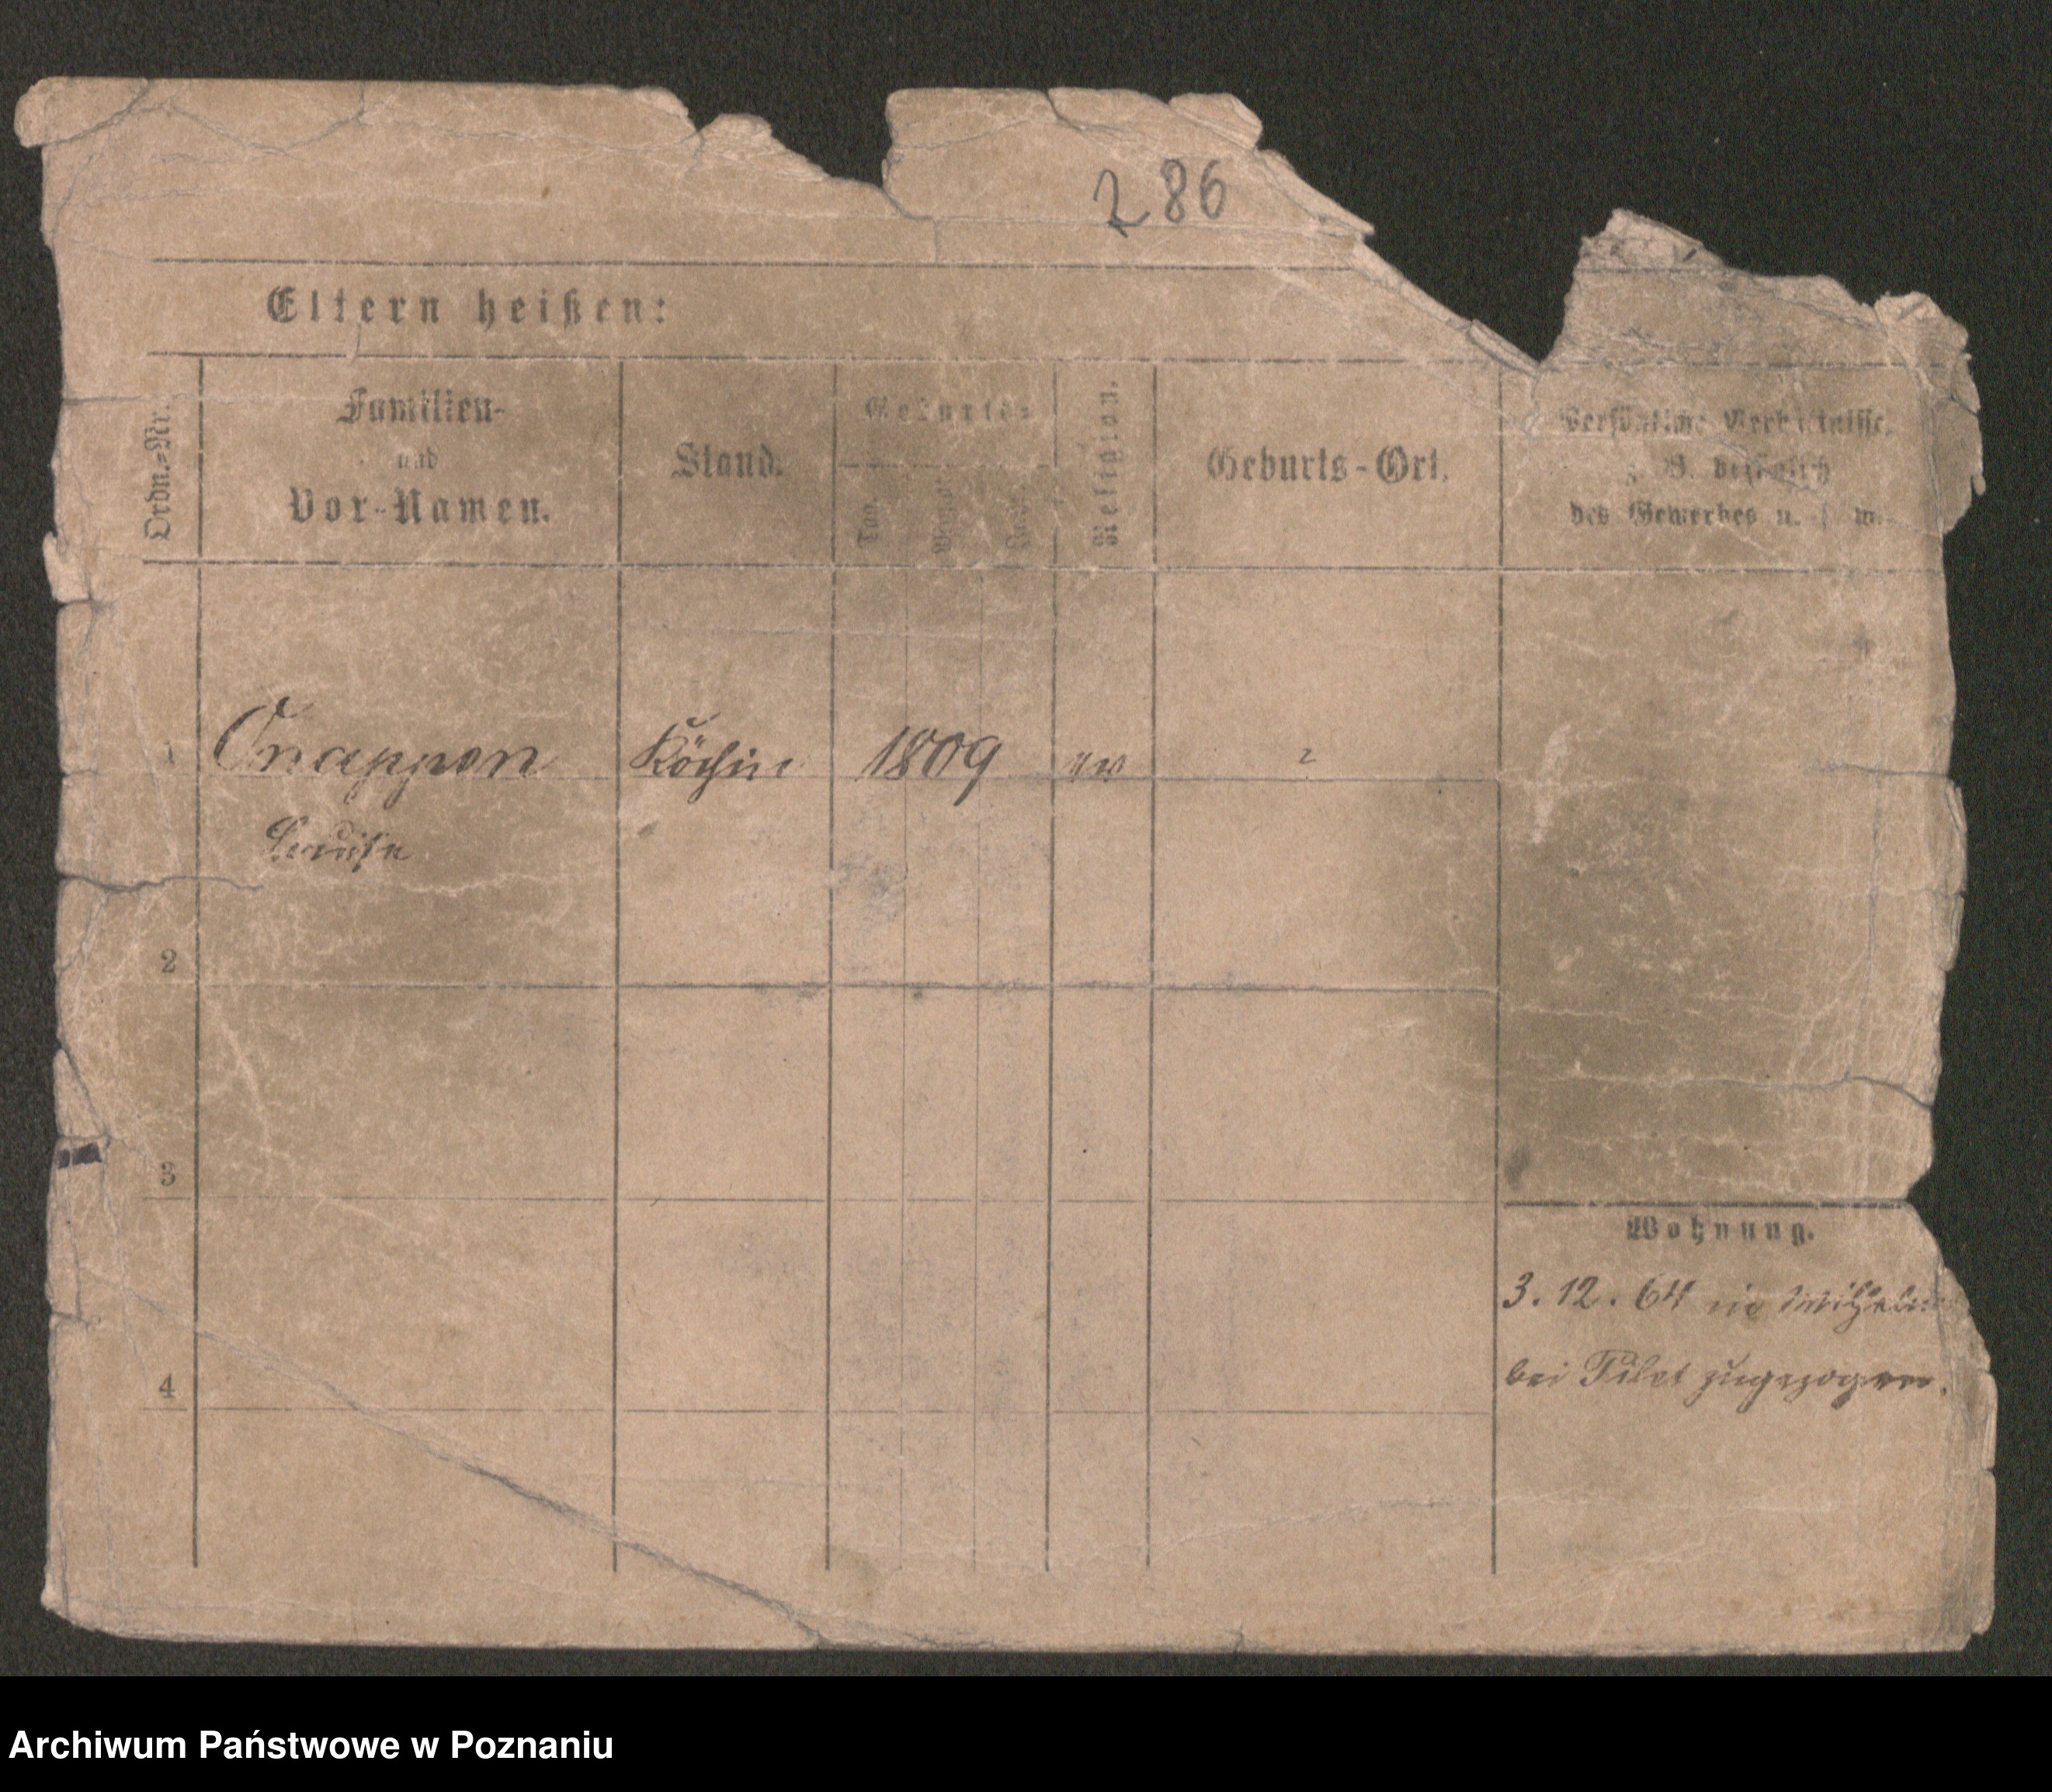 286
Eltern heißen:
Ordn.-Nr.
Familien-
und
Vor-Namen.
Stand.
Geburts-
Tag.
Monat.
Jahr.
Religion.
Geburts-Ort.
Persönliche Verhältnisse,
z. B. bezüglich
des Gewerbes u. s. w.
1 Köchin 1809 ev ?
Louise
2
3
Wohnung.
3. 12. 64
4
bei zugezogen.
Archiwum Państwowe w Poznaniu